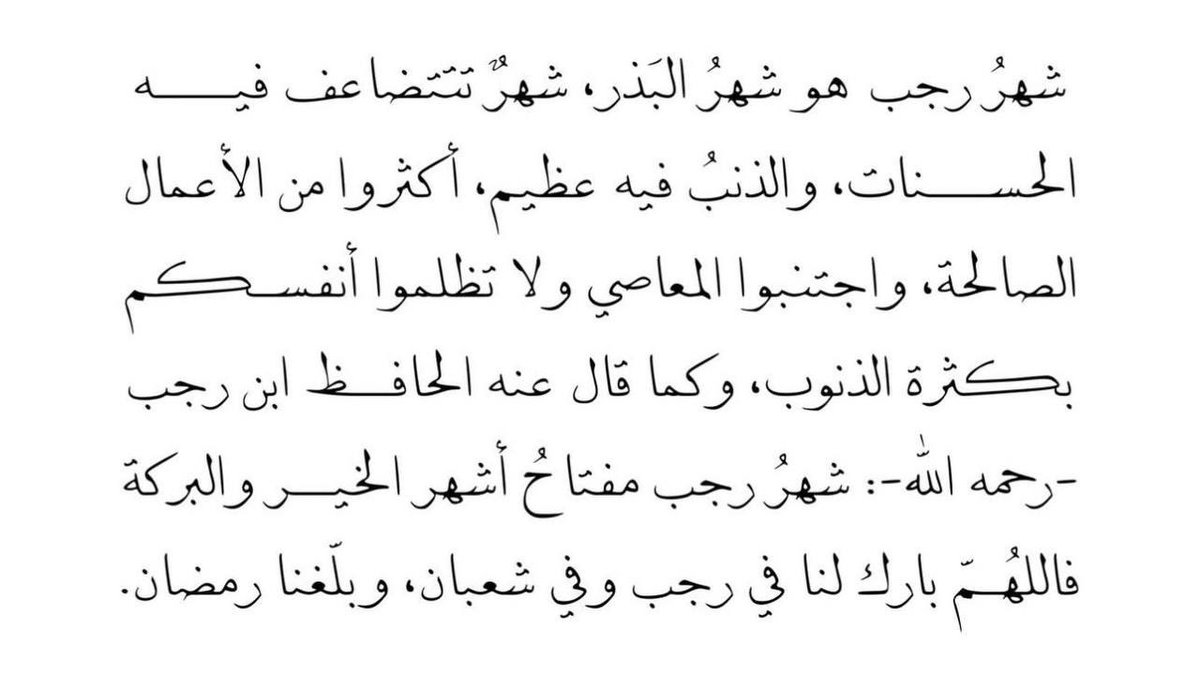 شهرُ رجب هو شهرُ البَذر، شهرٌ تتضاعف فيه
الحسنات، والذنبُ فيه عظيم، أكثروا من الأعمال
الصالحة، واجتنبوا المعاصي ولا تظلموا أنفسكم
بكثرة الذنوب، وكما قال عنه الحافظ ابن رجب
-رحمه الله-: شهرُ رجب مفتاحُ أشهر الخير والبركة
فاللهُمّ بارك لنا في رجب وفي شعبان، وبلّغنا رمضان.